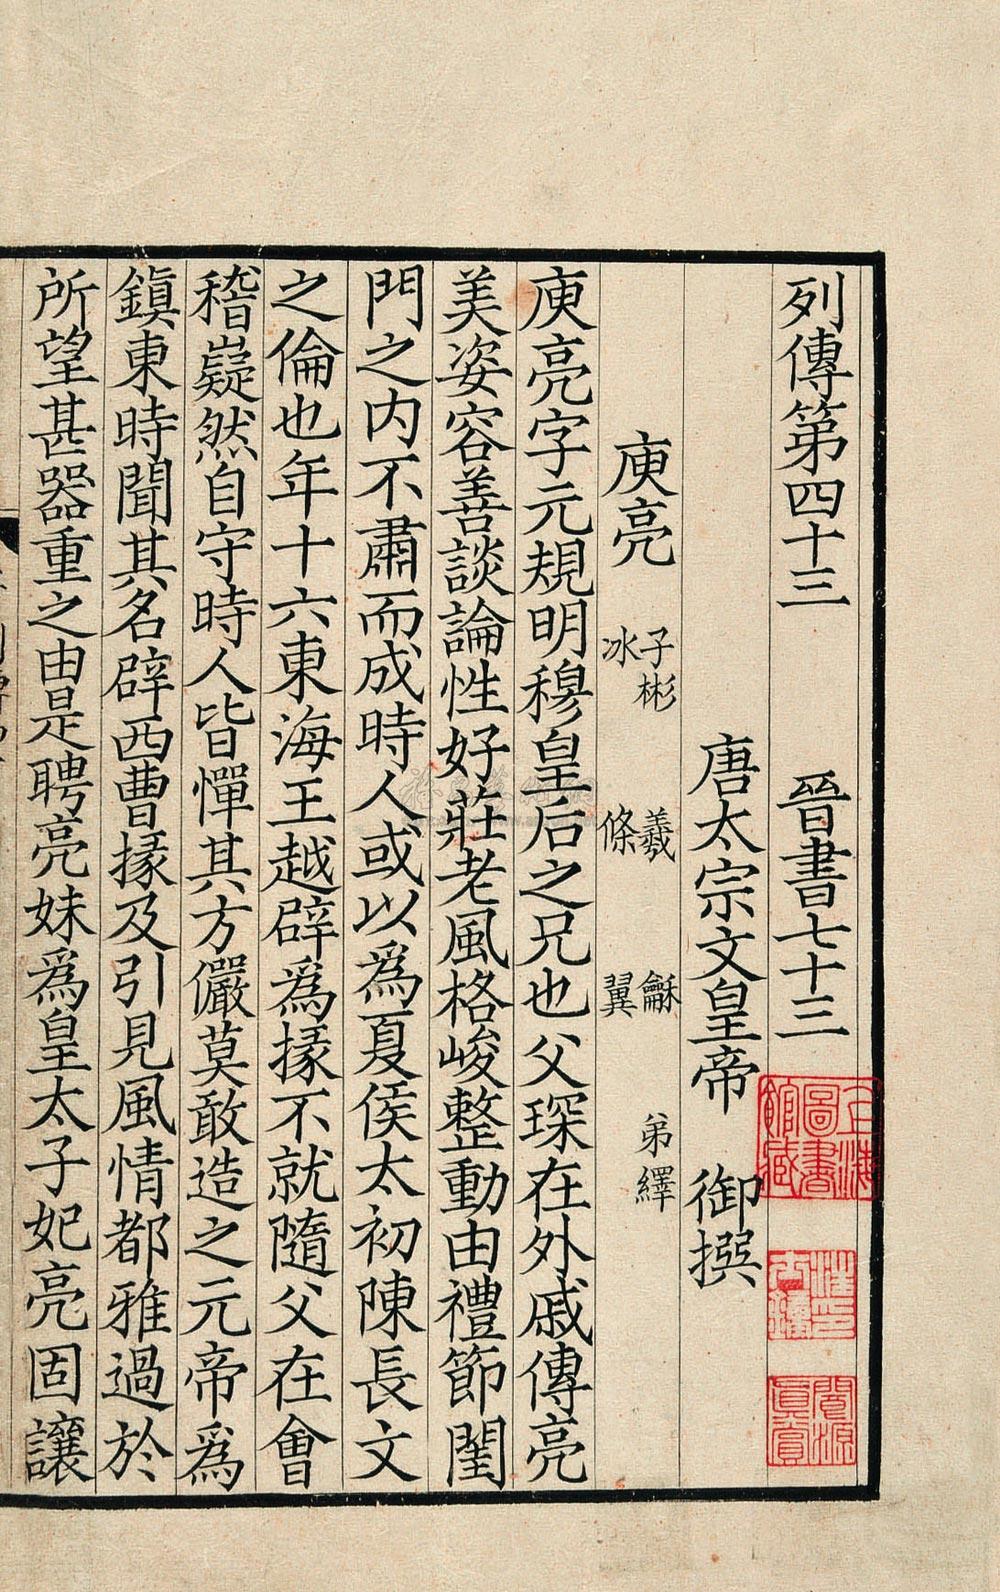 列傳第四十三 晉書七十三
唐太宗文皇帝 御撰
庾亮 子彬 羲 龢 弟繹 冰 條 翼
庾亮字元規明穆皇后之兄也父琛在外戚傳亮
美姿容善談論性好莊老風格峻整動由禮節閨
門之内不肅而成時人或以爲夏侯太初陳長文
之倫也年十六東海王越辟爲掾不就隨父在會
稽嶷然自守時人皆憚其方儼莫敢造之元帝爲
鎮東時聞其名辟西曹掾及引見風情都雅過於
所望甚器重之由是聘亮妹爲皇太子妃亮固讓
上海圖書館藏